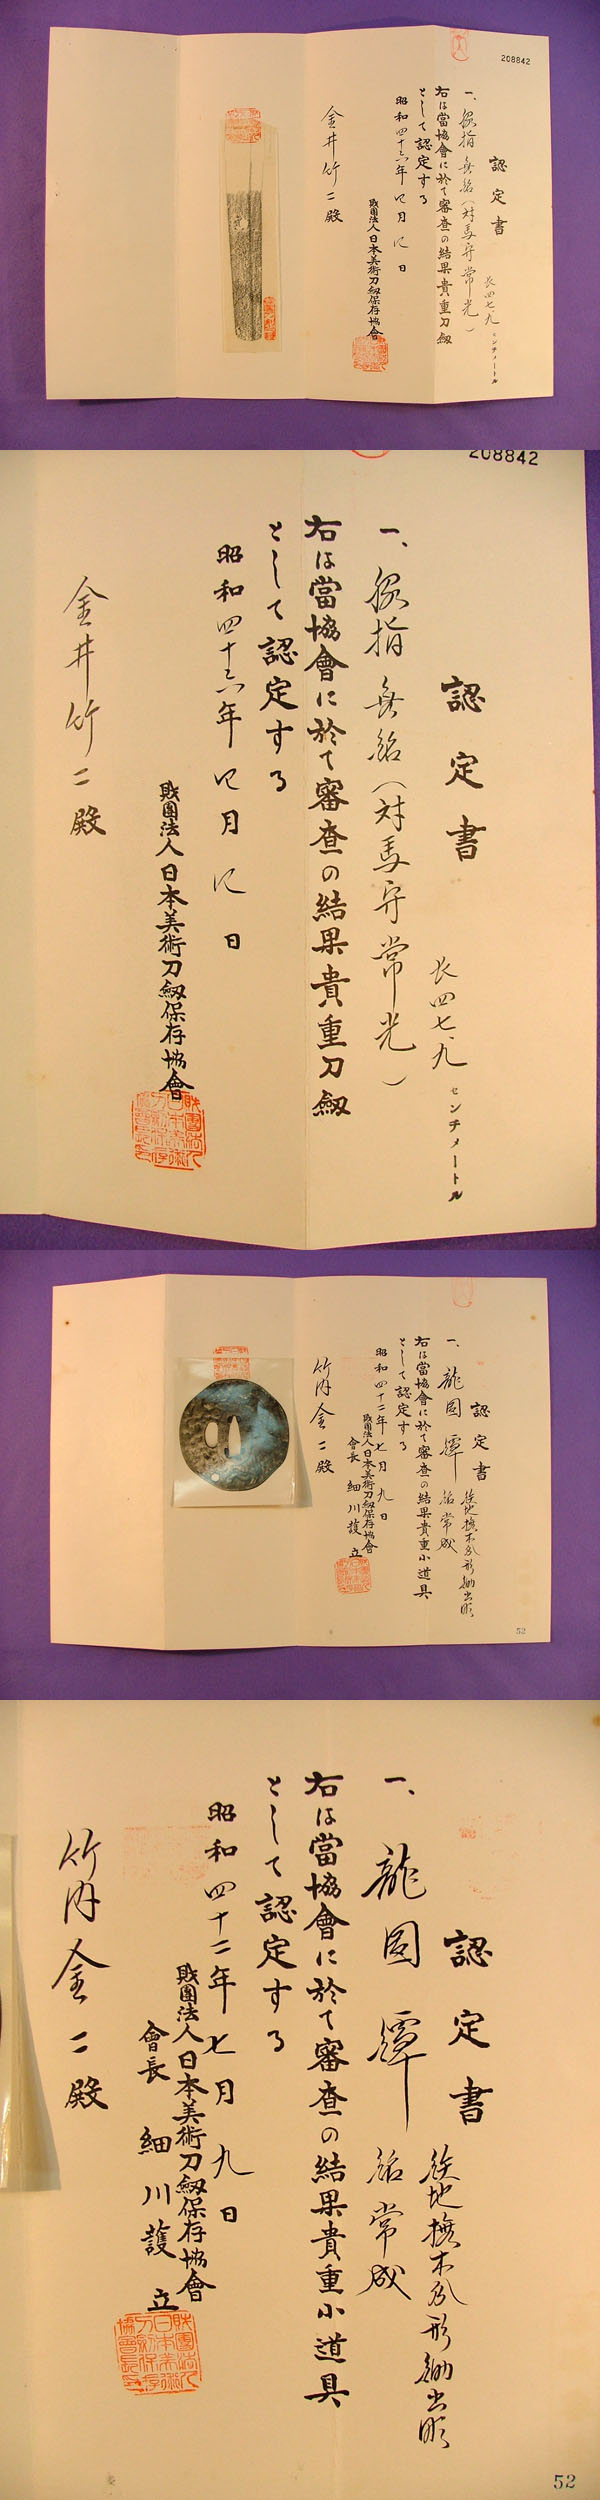 208842
認定書
長四七、九 センチメートル
一、脇指 無銘(対馬守常光)
右は當協會に於て審査の結果貴重刀劔
として認定する
昭和四十六年四月 日
財團法人日本美術刀劔保存協會
金井竹二殿
208842
認定書
長四七、九 センチメートル
一、脇指 無銘(対馬守常光)
右は當協會に於て審査の結果貴重刀劔
として認定する
昭和四十六年四月 日
財團法人日本美術刀劔保存協會
金井竹二殿
認定書
鉄地撫木瓜形鋤出彫
一、龍図鐔 銘常成
右は當協會に於て審査の結果貴重小道具
として認定する
昭和四十二年七月九日
財團法人日本美術刀劔保存協會
會長 細川護立
竹内金二殿
52
認定書
鉄地撫木瓜形鋤出彫
一、龍図鐔 銘常成
右は當協會に於て審査の結果貴重小道具
として認定する
昭和四十二年七月九日
財團法人日本美術刀劔保存協會
會長 細川護立
竹内金二殿
52